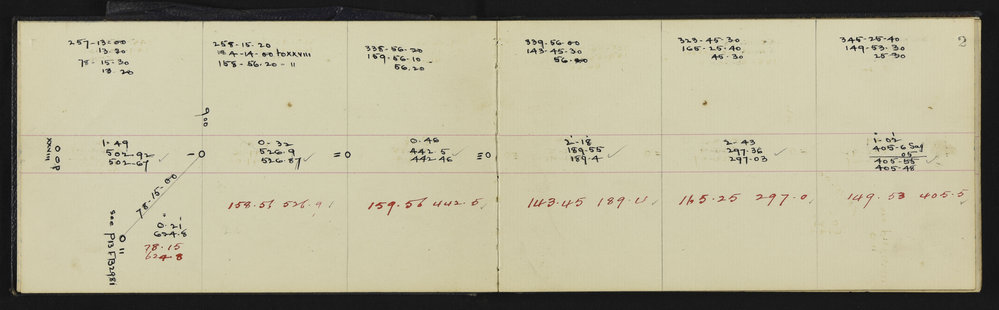 2
257-13-00
13.30
78-15-30
13.20
258-15-20
184-14-00 to XXVIII
158-56-20-11
338-56-20
159-56-10
56.20
339.56-00
143-45-30
56-20
323-45-30
165-25-40
45-30
345-25-40
149-53-30
25-30
900
XXVIII
0 0 0
1.49
502.92
502.67
- 0
0.32
526.9
526.87
= 0
0.46
442.5
442.46
≡ 0
2-18
189.55
189.4
2-43
297.36
297.03
1-02
405-6 Say
05
405-55
405-48
78-15-00
158.56 526.9
159.56 442.5
143.45 189.4
165.25 297.0
149.53 405.5
0.21
624.8
78.15
624-8
0 11
see P13 FB2981